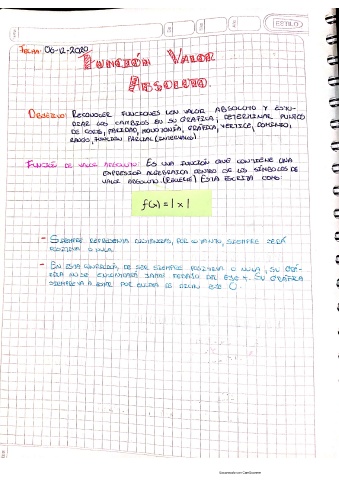 ESTILO
Fecha: 06-12-2020
Función Valor
Absoluto.
Destreza: Reconocer funciones con valor absoluto y
los cambios en su gráfica, determinar puntos
de corte, paridad, monotonía, gráfica, vértice, dominio,
rango, función parcial (intervalos)
Función de valor absoluto: Es una función que contiene una
expresión algebraica dentro de los símbolos de
valor absoluto. Está escrita como:
f(x) = | x |
- Siempre representa distancias, por lo tanto, siempre será
positiva o nula.
- En esta, de ser siempre positiva o nula, su grá-
fica no se encontrará jamás debajo del eje x. Su gráfica
siempre va a estar por encima de eje
Escaneado con CamScanner